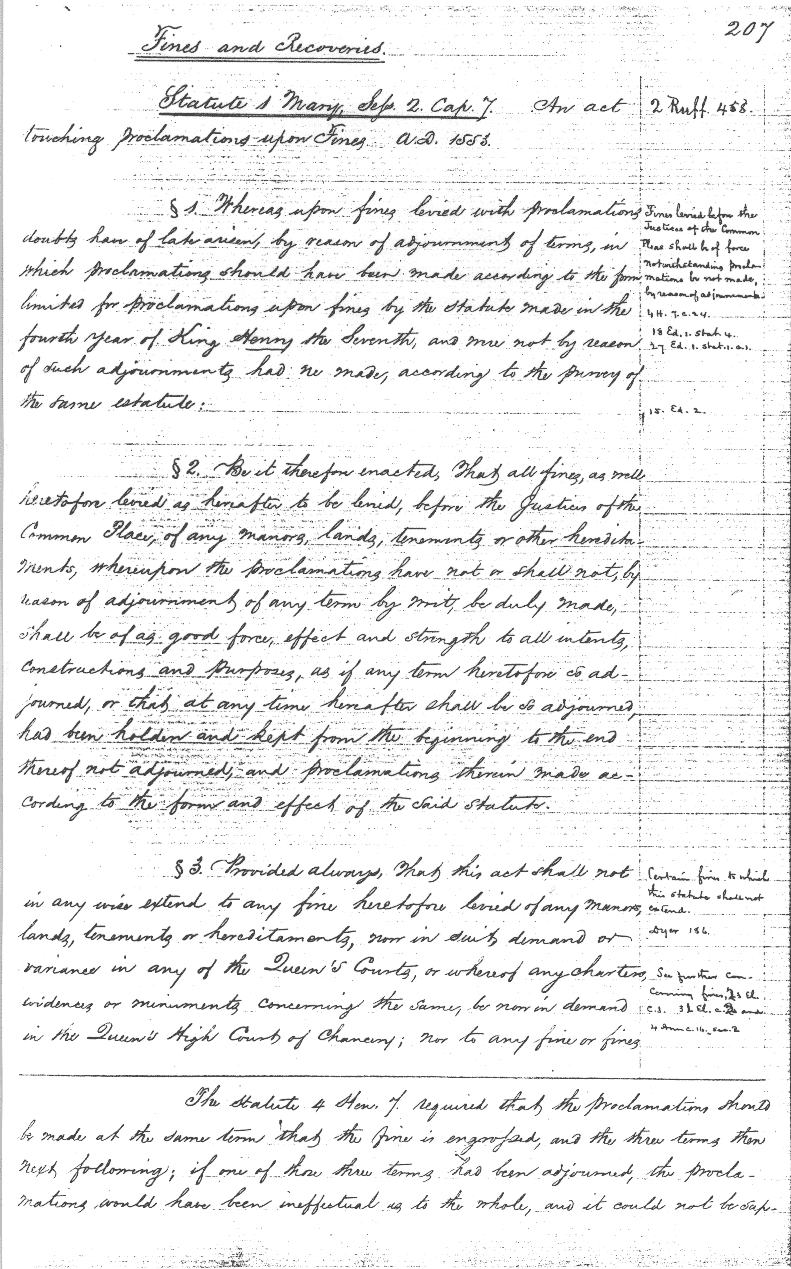 207
Fines and Recoveries.
Statute 1 Mary, Sess. 2. Cap. 7. An act
touching proclamations upon Fines A.D. 1553.
2 Ruff. 458.
§ 1. Whereas upon fines levied with proclamations
doubts have of late arisen, by reason of adjournment of terms, in
which proclamations should have been made according to the form
limited for proclamations upon fines by the statute made in the
fourth year of King Henry the Seventh, and were not by reason
of such adjournments had ne made, according to the purvey of
the same estatute:
Fines levied before the
Justices of the Common
Pleas shall be of force
notwithstanding procla-
mations be not made,
by reason of adjournments
4 H. 7. c. 24.
18 Ed. 1. Stat. 4.
27 Ed. 1. Stat. 1. c. 1.
15. Ed. 2.
§ 2. Be it therefore enacted, That all fines, as well
heretofore levied as hereafter to be levied, before the Justices of the
Common Place, of any manors, lands, tenements or other heredita-
ments, whereupon the proclamations have not or shall not, by
reason of adjournment of any term by writ, be duly made,
shall be of as good force, effect and strength to all intents,
constructions and purposes, as if any term heretofore so ad-
journed, or that at any time hereafter shall be so adjourned,
had been holden and kept from the beginning to the end
thereof not adjourned, and proclamations therein made ac-
cording to the form and effect of the said statute.
§ 3. Provided always, That this act shall not
in any wise extend to any fine heretofore levied of any manors,
lands, tenements or hereditaments, now in suit, demand or
variance in any of the Queen's Courts, or whereof any charters,
evidences or muniments concerning the same, be now in demand
in the Queen's High Court of Chancery; nor to any fine or fines
Certain fines to which
this statute shall not
extend.
Dyer 186.
See further con-
cerning fines, 23 El.
c. 3. 31 El. c. 2 and
4 Ann c. 16. sec. 2
The statute 4 Hen. 7. required that the proclamations should
be made at the same term that the fine is engrossed, and the three terms then
next following; if one of those three terms had been adjourned, the procla-
mations would have been ineffectual as to the whole, and it could not be sup-